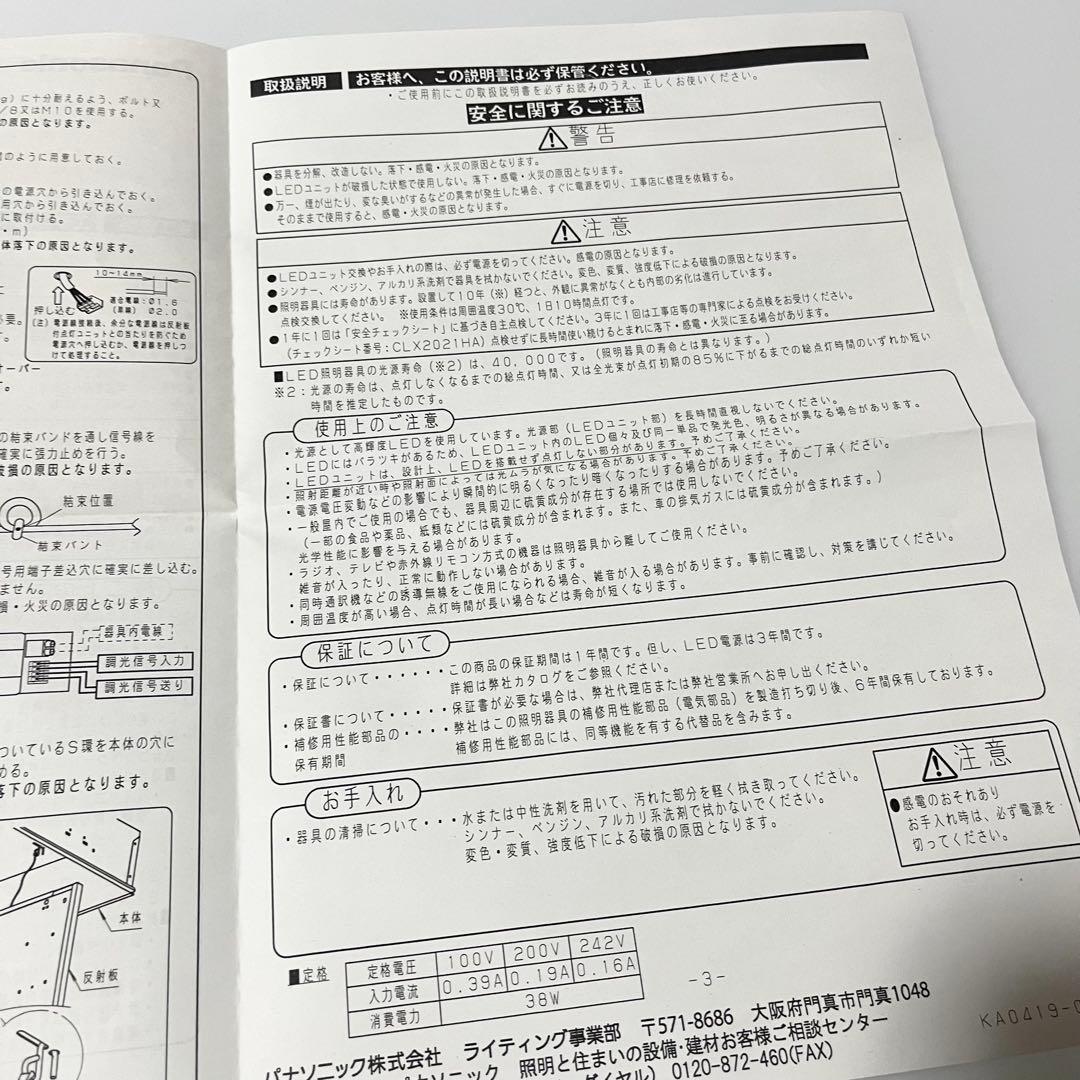 g)に十分耐えるよう、ボルト又
/8又はM10を使用する。
の原因となります。
のように用意しておく。
の電源穴から引き込んでおく。
用穴から引き込んでおく。
に取付ける。
・m)
体落下の原因となります。
10~14mm
押し込む
適合電線:Ø1.6
(単線) Ø2.0
(注)電源線接続後、余分な電源線は反射板
付点灯ユニットとの当たりを防ぐため
電源穴へ押し込むか、電源線を押しつ
けて処理すること。
必要。
オーバー
す。
の結束バンドを通し信号線を
確実に張力止めを行う。
破損の原因となります。
結束位置
結束バンド
号用端子差込穴に確実に差し込む。
ません。
損・火災の原因となります。
器具内電線
調光信号入力
調光信号送り
ついているS環を本体の穴に
める。
落下の原因となります。
本体
反射板
取扱説明 お客様へ、この説明書は必ず保管ください。
・ご使用前にこの取扱説明書を必ずお読みのうえ、正しくお使いください。
安全に関するご注意
警告
●器具を分解、改造しない。落下・感電・火災の原因となります。
●LEDユニットが破損した状態で使用しない。落下・感電・火災の原因となります。
●万一、煙が出たり、変な臭いがするなどの異常が発生した場合、すぐに電源を切り、工事店に修理を依頼する。
そのままで使用すると、感電・火災の原因となります。
注意
●LEDユニット交換やお手入れの際は、必ず電源を切ってください。感電の原因となります。
●シンナー、ベンジン、アルカリ系洗剤で器具を拭かないでください。変色、変質、強度低下による破損の原因となります。
●照明器具には寿命があります。設置して10年(※)経つと、外観に異常がなくとも内部の劣化は進行しています。
点検交換してください。 ※使用条件は周囲温度30℃、1日10時間点灯です。
●1年に1回は「安全チェックシート」に基づき自主点検してください。3年に1回は工事店等の専門家による点検をお受けください。
(チェックシート番号:CLX2021HA)点検せずに長時間使い続けるとまれに落下・感電・火災に至る場合があります。
■LED照明器具の光源寿命(※2)は、40,000です。(照明器具の寿命とは異なります。)
※2:光源の寿命は、点灯しなくなるまでの総点灯時間、又は全光束が点灯初期の85%に下がるまでの総点灯時間のいずれか短い
時間を推定したものです。
使用上のご注意
・光源として高輝度LEDを使用しています。光源部(LEDユニット部)を長時間直視しないでください。
・LEDにはバラツキがあるため、LEDユニット内のLED個々及び同一単品で発光色、明るさが異なる場合があります。
・LEDユニットは、設計上、LEDを搭載せず点灯しない部分があります。予めご了承ください。
・照射距離が近い時や照射面によっては光ムラが気になる場合があります。予めご了承ください。
・電源電圧変動などの影響により瞬間的に明るくなったり暗くなったりする場合があります。予めご了承ください。
・一般屋内でご使用の場合でも、器具周辺に硫黄成分が存在する場所では使用しないでください。
(一部の食品や薬品、紙類などには硫黄成分が含まれます。また、車の排気ガスには硫黄成分が含まれます。)
光学性能に影響を与える場合があります。
・ラジオ、テレビや赤外線リモコン方式の機器は照明器具から離してご使用ください。
雑音が入ったり、正常に動作しない場合があります。
・同時通訳機などの誘導無線をご使用になられる場合、雑音が入る場合があります。事前に確認し、対策を講じてください。
・周囲温度が高い場合、点灯時間が長い場合などは寿命が短くなります。
保証について
・保証について・・・・・・この商品の保証期間は1年間です。但し、LED電源は3年間です。
詳細は弊社カタログをご参照ください。
・保証書について・・・・・保証書が必要な場合は、弊社代理店または弊社営業所へお申し出ください。
・補修用性能部品の・・・・弊社はこの照明器具の補修用性能部品(電気部品)を製造打ち切り後、6年間保有しております。
保有期間 補修用性能部品には、同等機能を有する代替品を含みます。
お手入れ
・器具の清掃について・・・水または中性洗剤を用いて、汚れた部分を軽く拭き取ってください。
シンナー、ベンジン、アルカリ系洗剤で拭かないでください。
変色・変質、強度低下による破損の原因となります。
注意
●感電のおそれあり
お手入れ時は、必ず電源を
切ってください。
■定格
定格電圧 100V 200V 242V
入力電流 0.39A 0.19A 0.16A
消費電力 38W
-3-
パナソニック株式会社 ライティング事業部 〒571-8686 大阪府門真市門真1048
パナソニック 照明と住まいの設備・建材お客様ご相談センター
ダイヤル) 0120-872-460(FAX)
KA0419-0